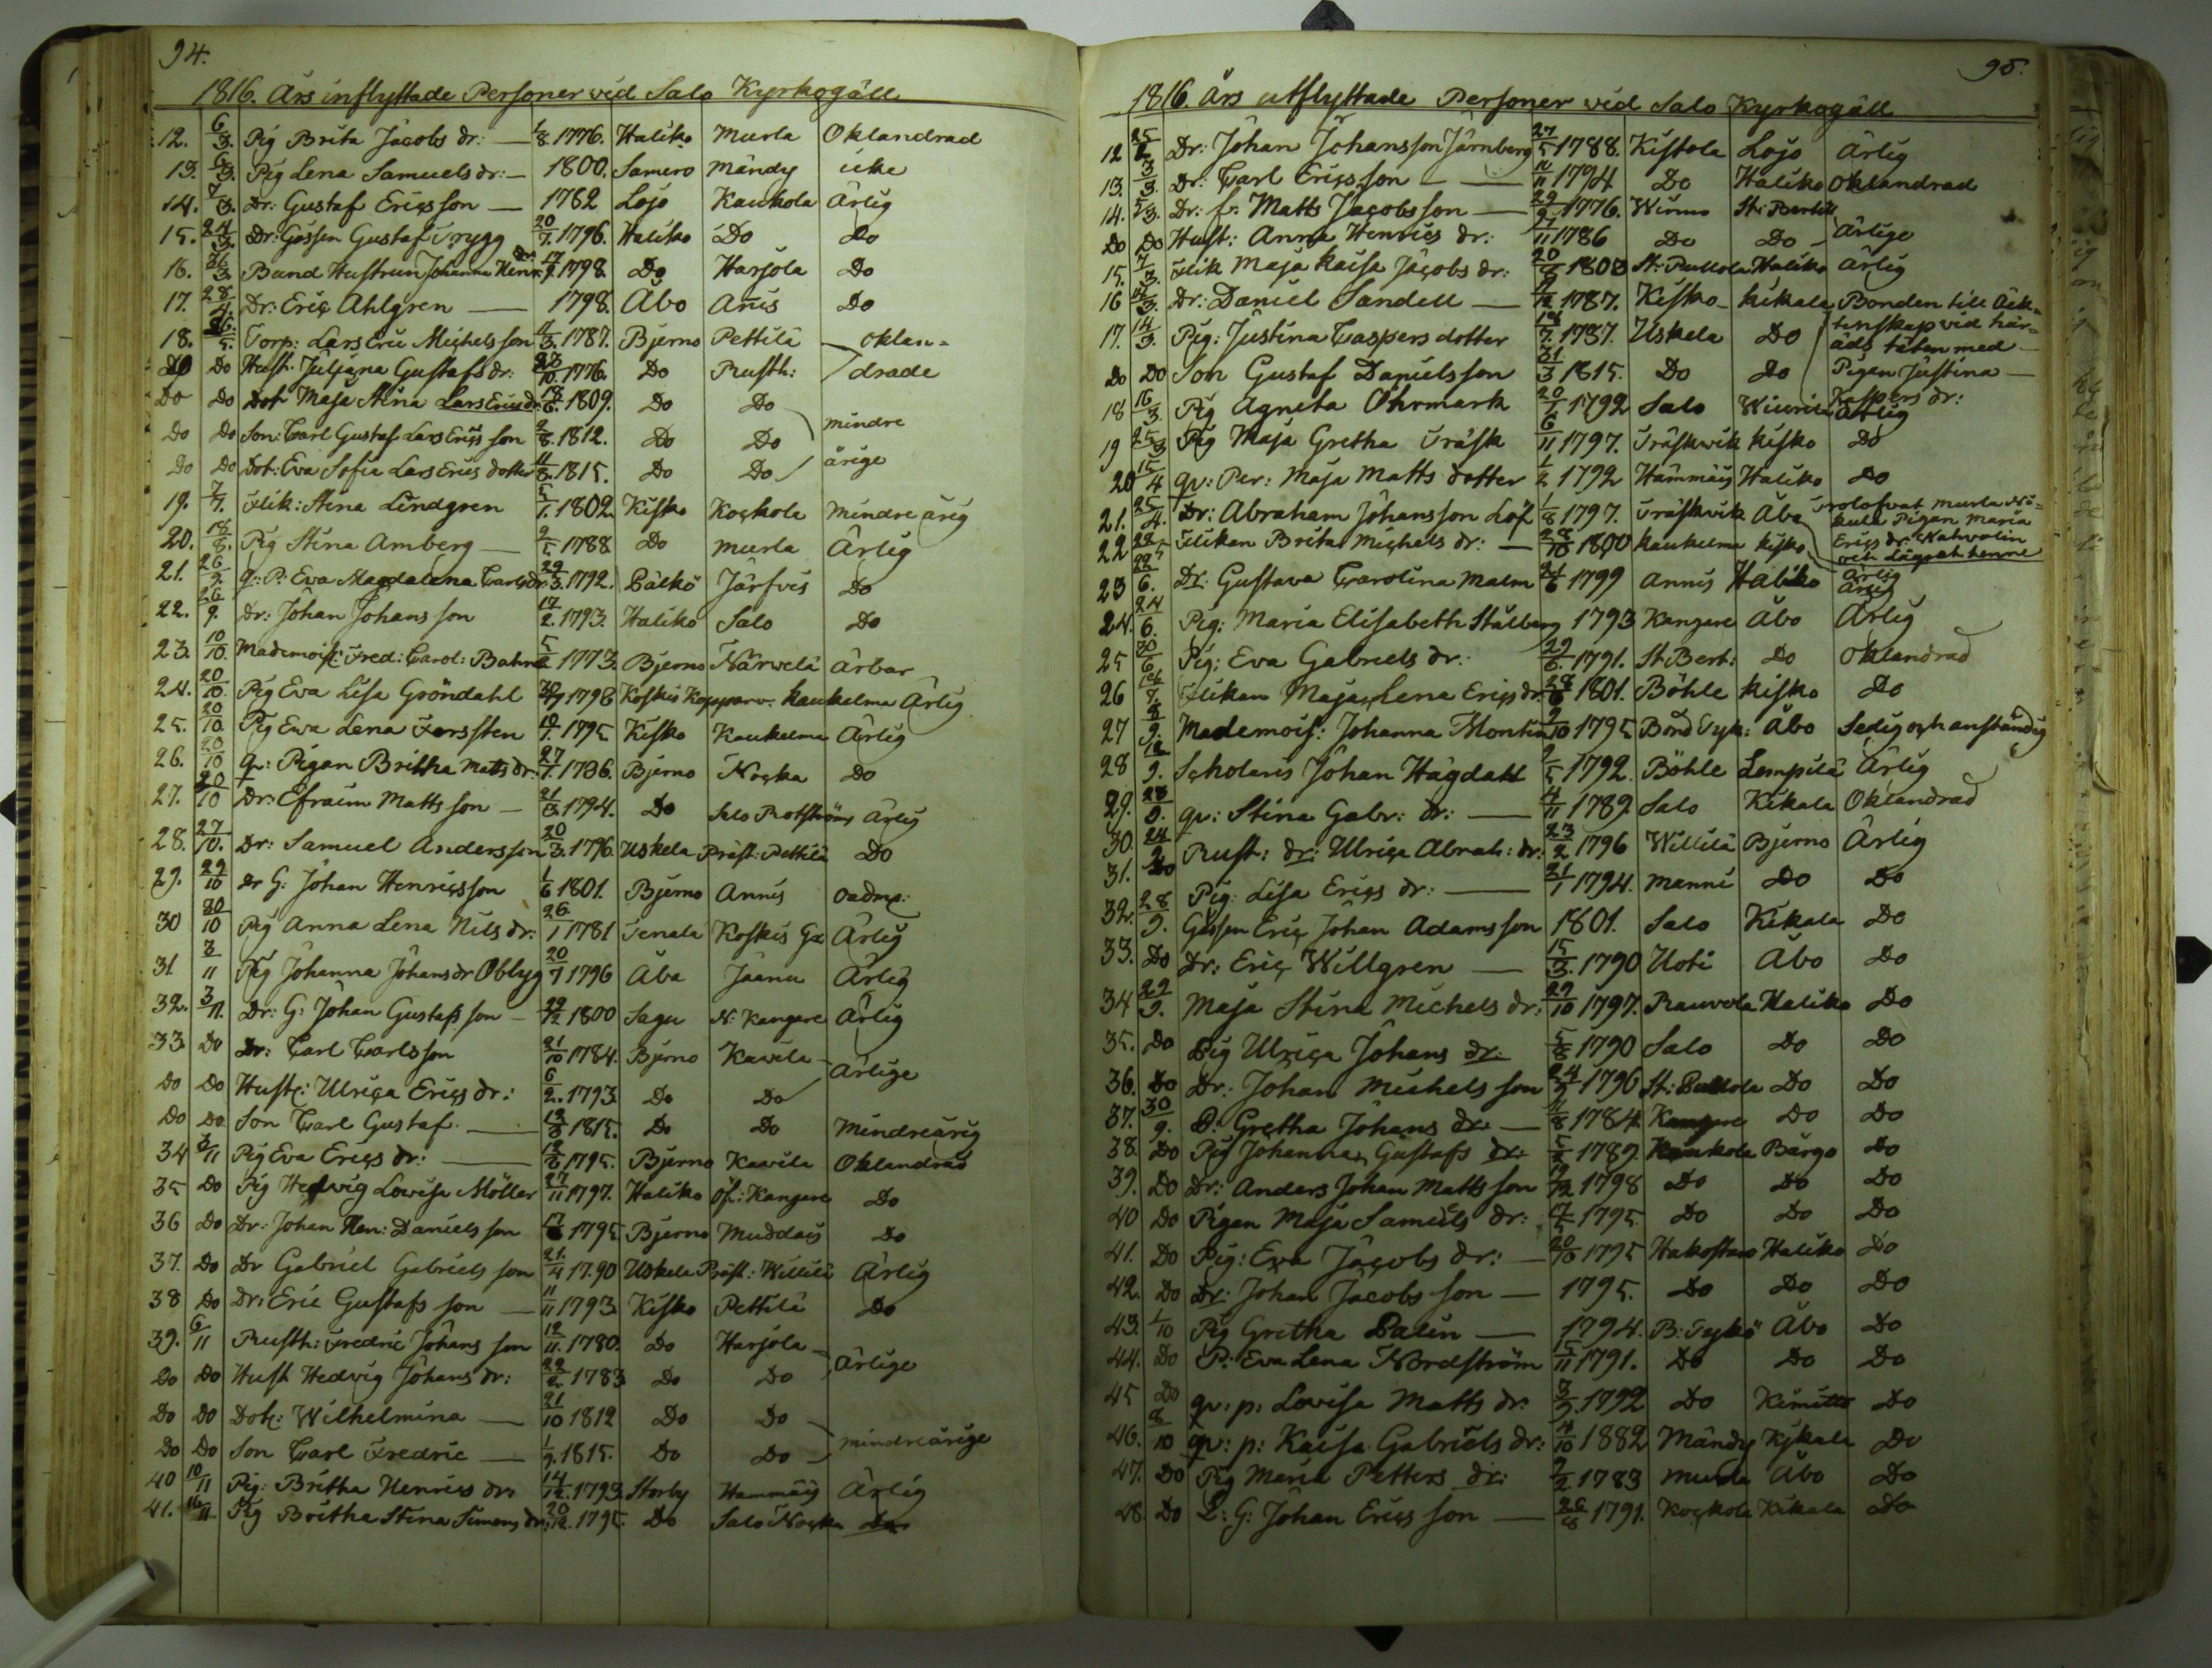 94.
1816. Års inflyttade Personer vid Salo Kyrkogäll
12. 6/3. Pig Brita Jacobs dr: — 1/8. 1776. Haliko Murla Oklandrad
13. 6/3. Pig Lena Samuels dr: — 1800. Samero Mändy icke
14. 7/3. Dr: Gustaf Ericsson — 1782 Lojo Kaukola Ärlig
15. 24/3. Dr: Gossen Gustaf Trygg 20/7. 1796. Haliko Do Do
16. 26/3. Bond Hustrun Johanna Henr: dr 17/9. 1798. Do Harjola Do
17. 28/4. Dr: Eric Ahlgren — 1798. Åbo Anis Do
18. 26/5. Torp: Lars Eric Michelsson 11/3. 1787. Bjerno Pettilä oklan=
Do Do Hust. Juljana Gustafs dr: 23/10. 1776. Do Rusth: drade
Do Do Dot Maja Stina Lars Erics dr. 18/6. 1809. Do Do
mindre
Do Do Son: Carl Gustaf Lars Erics son 2/8. 1812. Do Do
ärige
Do Do Dot: Eva Sofia Lars Erics dotter 11/8. 1815. Do Do
19. 7/7. Flik: Stina Lindgren 5/1. 1802. Kisko Kockola Mindre ärig
20. 18/8. Pig Stina Amberg — 2/5 1788 Do Murla Ärlig
21. 26/9. q: P: Eva Magdalena Carls dr 29/3. 1792. Pälkö Järfvis Do
22. 26/9. Dr: Johan Johansson 17/2. 1793. Haliko Salo Do
23. 10/10. Mademois: Fred: Carol: Bahne 5/2 1773. Bjerno Närvelä Ärbar
24. 20/10. Pig Eva Lisa Gröndahl 1798 Koskis Kopparv. Kaukelma Ärlig
25. 20/10. Pig Eva Lena Forssten 10/1. 1795. Kisko Kaukelma Ärlig
26. 20/10 q: Pigan Britha Matts dr: 27/7. 1786. Bjerno Nocka Do
27. 20/10 Dr: Efraim Mattsson — 21/3. 1794. Do Salo Rotström Ärlig
28. 27/10. Dr: Samuel Andersson 20/3. 1796. Uskela Präst: Pettilä Do
29. 29/10 Dr G: Johan Henricsson 1/6 1801. Bjerno Annis
30 30/10 Pig Anna Lena Nils dr: 26/1 1781 Tenala Koskis Ärlig
31 3/11 Pig Johanna Johans dr Oblyg 20/7 1796 Åbo Jaanu Ärlig
32. 3/11. Dr: G: Johan Gustafsson — 29/12 1800 Sagu N: Kangare Ärlig
33. Do Dr: Carl Carlsson 21/10 1784. Bjerno Kavila
Ärlige
Do Do Hust: Ulrica Erics dr: 6/2. 1793. Do Do
Do Do Son Carl Gustaf. — 12/3 1815. Do Do Mindreärig
34 3/11 Pig Eva Erics dr: — 12/6 1795. Bjerno Kavila Oklandrad
35 Do Pig Hedvig Lovisa Möller 27/11 1797. Haliko Öf: Kangare Do
36 Do Dr: Johan Hen: Danielsson 17/6 1795. Bjerno Muddais Do
37. Do Dr Gabriel Gabrielsson 21/4 1790 Uskela Präst: Willilä Ärlig
38 Do Dr: Eric Gustafsson — 11/11 1793 Kisko Pettilä Do
39. 6/11 Rusth: Fredric Johansson 12/11. 1780. Do Harjola
Ärlige
Do Do Hust Hedvig Johans dr: 22/2. 1783 Do Do
Do Do Dot: Wilhelmina — 21/10 1812 Do Do
mindreärige
Do Do Son Carl Fredric — 1/9. 1815. Do Do
40 10/11 Pig: Britha Henrics dr: 14/12. 1793. Storby Hammäis Ärlig
41. 16/11 Pig Britha Stina Simons dr: 20/12. 1795. Do Salo Nocka Do
95.
1816. Års utflyttade Personer vid Salo Kyrkogäll
12 25/2 Dr: Johan Johansson Järnberg 27/5 1788. Kistola Lojo Ärlig
13. 3/3. Dr: Carl Ericsson — 10/11 1794 Do Haliko Oklandrad
14. 5/3. Dr: f. Matts Jacobsson — 29/9. 1776. Wirmo St: Bertill
Ärlige
Do Do Hust: Anna Henrics dr: 1786 Do Do
15. 7/3. Flik Maja Kaisa Jacobs dr: 20/8 1803 St: Pullola Haliko Ärlig
16 12/3. Dr: Daniel Sandell — 1787. Kisko Kikala Bonden till äck=
17. 14/3. Pig: Justina Caspers dotter 18/7. 1787. Uskela Do tenskap vid här=
ads täten med
Do Do Son Gustaf Danielsson 31/3 1815. Do Do Pigan Justina
Kaspers dr:
18 16/3. Pig Agneta Öhrmark 20/1 1792 Salo Wiurila Ärlig
19 25/3 Pig Maja Gretha Träsk 6/11 1797. Träskwik Kisko Do
20 15/4 qv: Per: Maja Matts dotter 1/2 1792 Hammäis Haliko Do
21. 25/4. Dr: Abraham Johansson Löf 1/8 1797. Träskvik Åbo Trolofvat Murla
Pigan Maria
22 28/5 Flikan Brita Michels dr: — 28/10 1800 Kaukelma Kisko Erics dr: Nahvolin
och lägrat henne
Ärlig
23 6. Dr: Gustava Carolina Malm 21/6 1799 Annis Haliko Ärlig
24. 24/6. Pig: Maria Elisabeth Stålberg 1793 Kangare Åbo Ärlig
25 30/6 Pig: Eva Gabriels dr: 29/6. 1791. St Bert: Do Oklandrad
26 Flikan Maja Lena Erics dr. 28/8 1801. Böhle Kisko Do
27 Mademois: Johanna Montin 9/10 1795 Bond Tyk: Åbo Sedig och anständig
28 12/9. Scholaris Johan Hagdahl 2/5 1792. Böhle Lempilä Ärlig
29. 23/9. qv: Stina Gabr: dr: — 4/11 1789. Salo Kikala Oklandrad
30. 24/9 Rust: dr: Ulrica Abrah: dr: 23/2 1796 Willilä Bjerno Ärlig
31. Do Pig: Lisa Erics dr: — 21/1 1794. Manni Do Do
32. 28/9. Gossen Eric Johan Adamsson 1801. Salo Kikala Do
33. Do Dr: Eric Willgren — 15/3. 1790 Uoti Åbo Do
34 29/9. Maja Stina Michels dr: 29/10 1797. Rauvola Haliko Do
35. Do Pig Ulrica Johans dr: 5/8 1790 Salo Do Do
36. Do Dr: Johan Michelsson 24/9 1796 St: Pullola Do Do
37. 30/9. P. Gretha Johans dr: — 11/8 1784 Kangare Do Do
38. Do Pig Johanna Gustafs dr: 5/2 1789. Kaukola Bärgo Do
39. Do Dr: Anders Johan Mattsson 19/12 1798 Do Do Do
40 Do Pigan Maja Samuels dr: 17/5 1795. Do Do Do
41. Do Pig: Eva Jacobs dr: — 20/10 1795 Hakostaro Haliko Do
42. Do Dr: Johan Jacobsson — 1795. Do Do Do
43. 1/10 Pig Gretha Palin — 1794. B: Tykö Åbo Do
44. Do P: Eva Lena Nordström 15/11 1791. Do Do Do
45 Do qv: p: Lovisa Matts dr: 3/9. 1792 Do Kimitto Do
46. 8/10 qv: p: Kaisa Gabriels dr: 4/10 1882 Mändy Kikala Do
47. Do Pig Maria Petters dr: 9/2 1783 Murla Åbo Do
48. Do L: G: Johan Ericsson — 26/8 1791. Kockola Kikala Do